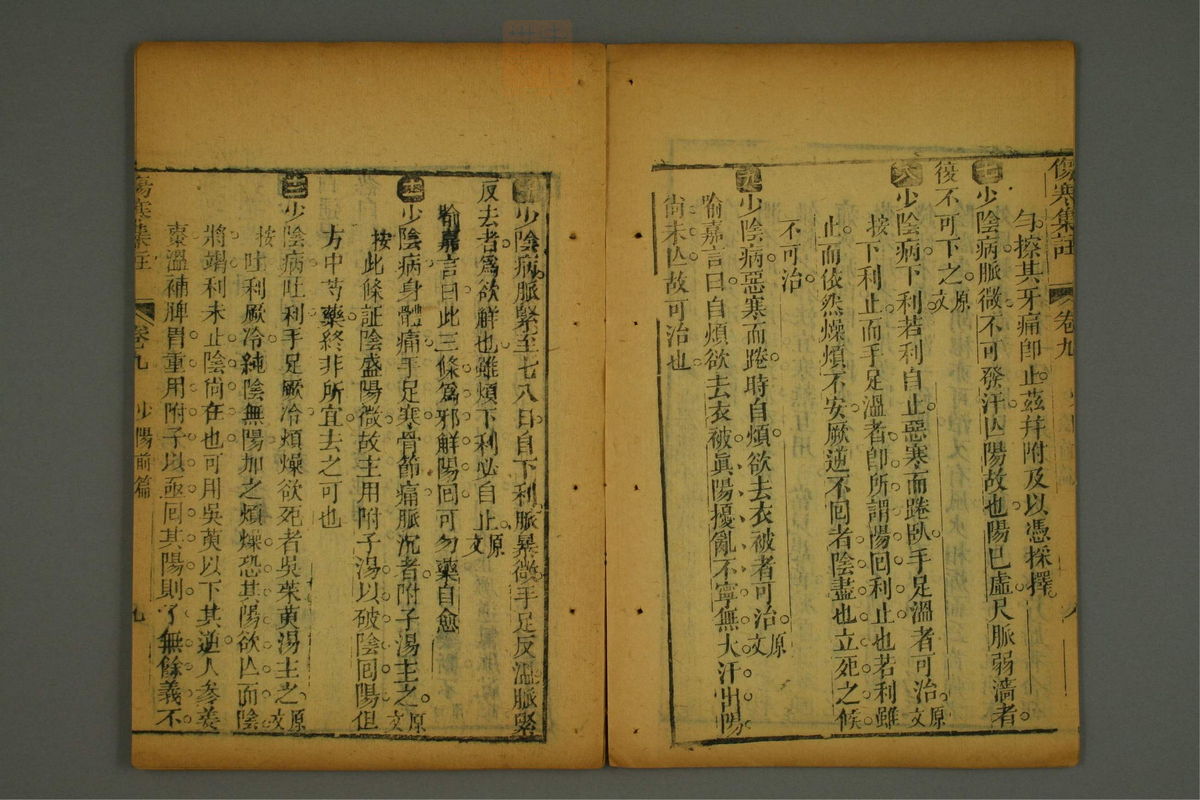 傷寒集註 卷九
勻擦其牙痛即止茲幷附及以憑採擇
七 少陰病脈微不可發汗亾陽故也陽已虛尺脈弱濇者
復不可下之原文
八 少陰病下利若利自止惡寒而踡臥手足溫者可治原文
按下利止而手足溫者即所謂陽回利止也若利雖
止而依然燥煩不安厥逆不回者陰盡也立死之候
不可治
九 少陰病惡寒而踡時自煩欲去衣被者可治原文
喻嘉言曰自煩欲去衣被眞陽擾亂不寧無大汗出陽
尚未亾故可治也
少陰病脈緊至七八日自下利脈暴微手足反溫脈緊
反去者爲欲解也雖煩下利必自止原文
喻嘉言曰此三條爲邪解陽回可勿藥自愈
少陰病身體痛手足寒骨節痛脈沉者附子湯主之原文
按此條証陰盛陽微故主用附子湯以破陰囘陽但
方中芍藥終非所宜去之可也
少陰病吐利手足厥冷煩燥欲死者吳茱萸湯主之原文
按吐利厥冷純陰無陽加之煩燥恐其陽欲亾而陰
將竭利未止陰尚在也可用吳萸以下其逆人參姜
棗溫補脾胃重用附子以亟回其陽則了無餘義不
傷寒集註 卷九 少陽前篇 九